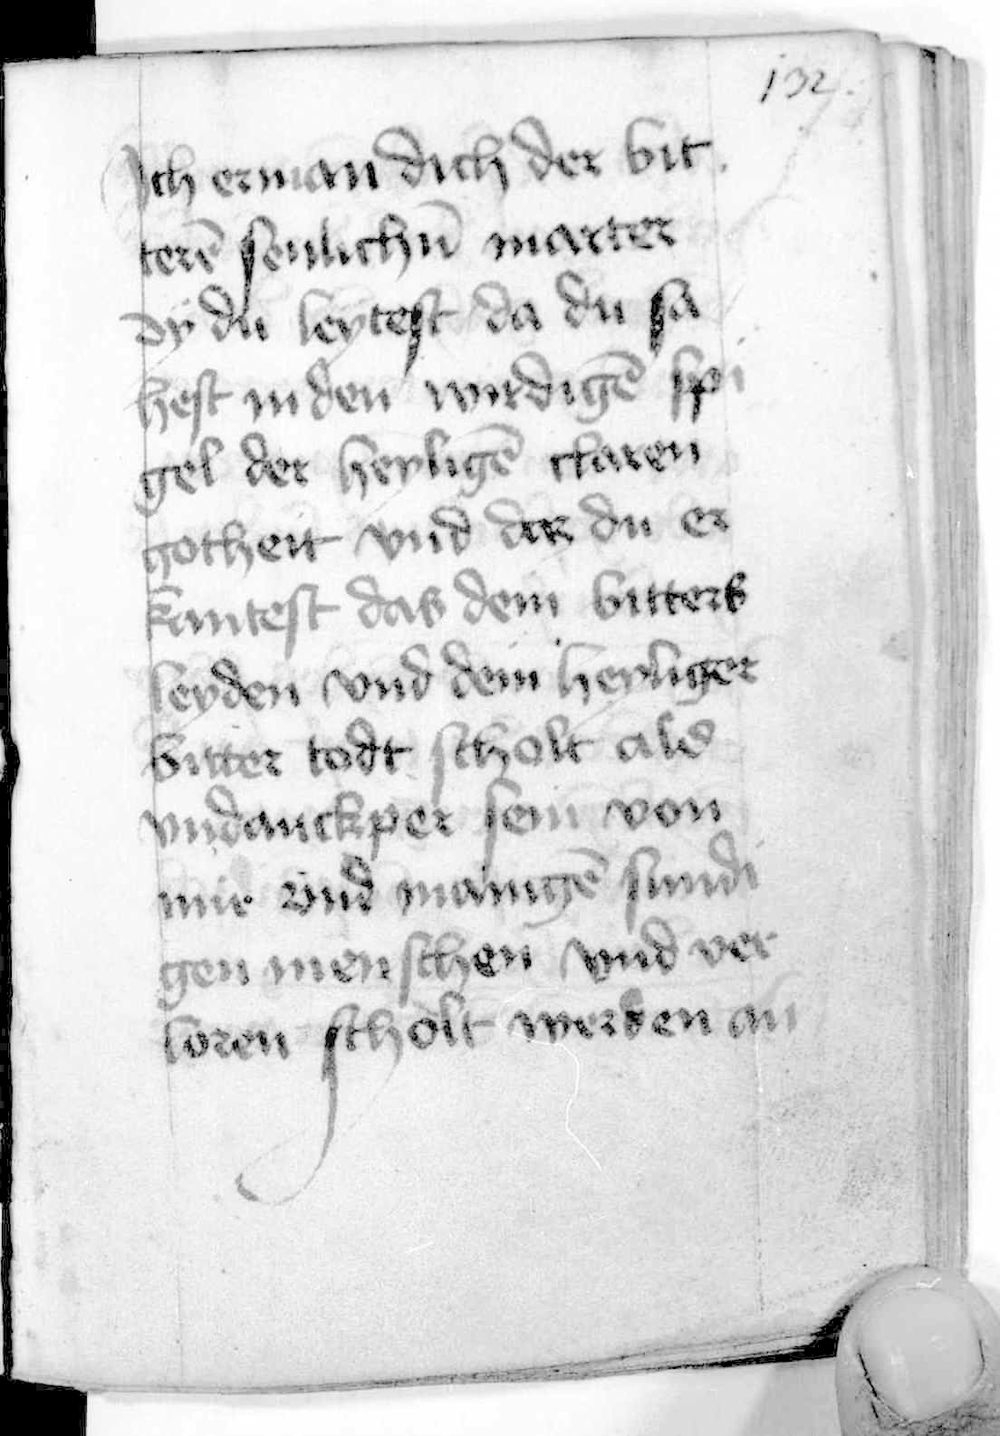 132.
Ich erman dich der bit
terē senlichn̄ marter
dy du leytest da du sa
hest in den wirdigē spi
gel der heyligē claren
gotheit vnd das du er
kantest das dein bitters
leyden vnd dein heyliger
bitter todt scholt als
vndanckper sein von
mir vnd manigē sundi
gen menschen vnd ver
loren scholt werden an